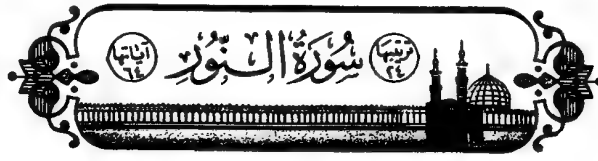 ترتيبها ٢٤ سُورَةُ النُّورِ آياتها ٦٤